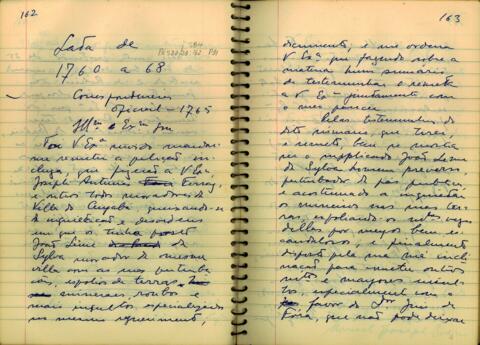 162
Lata de
1760 a 68
Correspondencia
oficial - 1765
Illmo e Exmo Snr
Foi V Exa servido mandar
me remetter a petição in
cluza, que fizerão a V Exa
Joseph Antunes Ferraz,
e outros todos moradores da
Villa de Cuyabá, queixando-se
da inquietação e desordens
em que os tinha posto
João Leme de
Sylva morador da mesma
villa com as mas perturba
coes, espolios de terras,
mineraes, roubos e
mais insultos especializados
no mesmo requerimento,
163
documento, e me ordena
V Exa que fazendo sobre a
materia hum summario
de testemunhas o remetta
a V Exa juntamente com
o meu parecer
Pelas testemunhas do
dito summario, que tirei,
e remetto, bem se mostra
ser o supplicado João Leme
da Sylva homem preverso,
perturbador da paz publica
e acostumado a inquietar
os mineiros nas suas ter
ras, espoliando os mtas vezes
dellas por meyos bem es
candalosos, e finalmente
disposto pela sua má incli
nação para cometter outros
mtos e mayores insul
tos, especialmente com o
favor do Dor Juiz de
Fóra, que não pode deixar